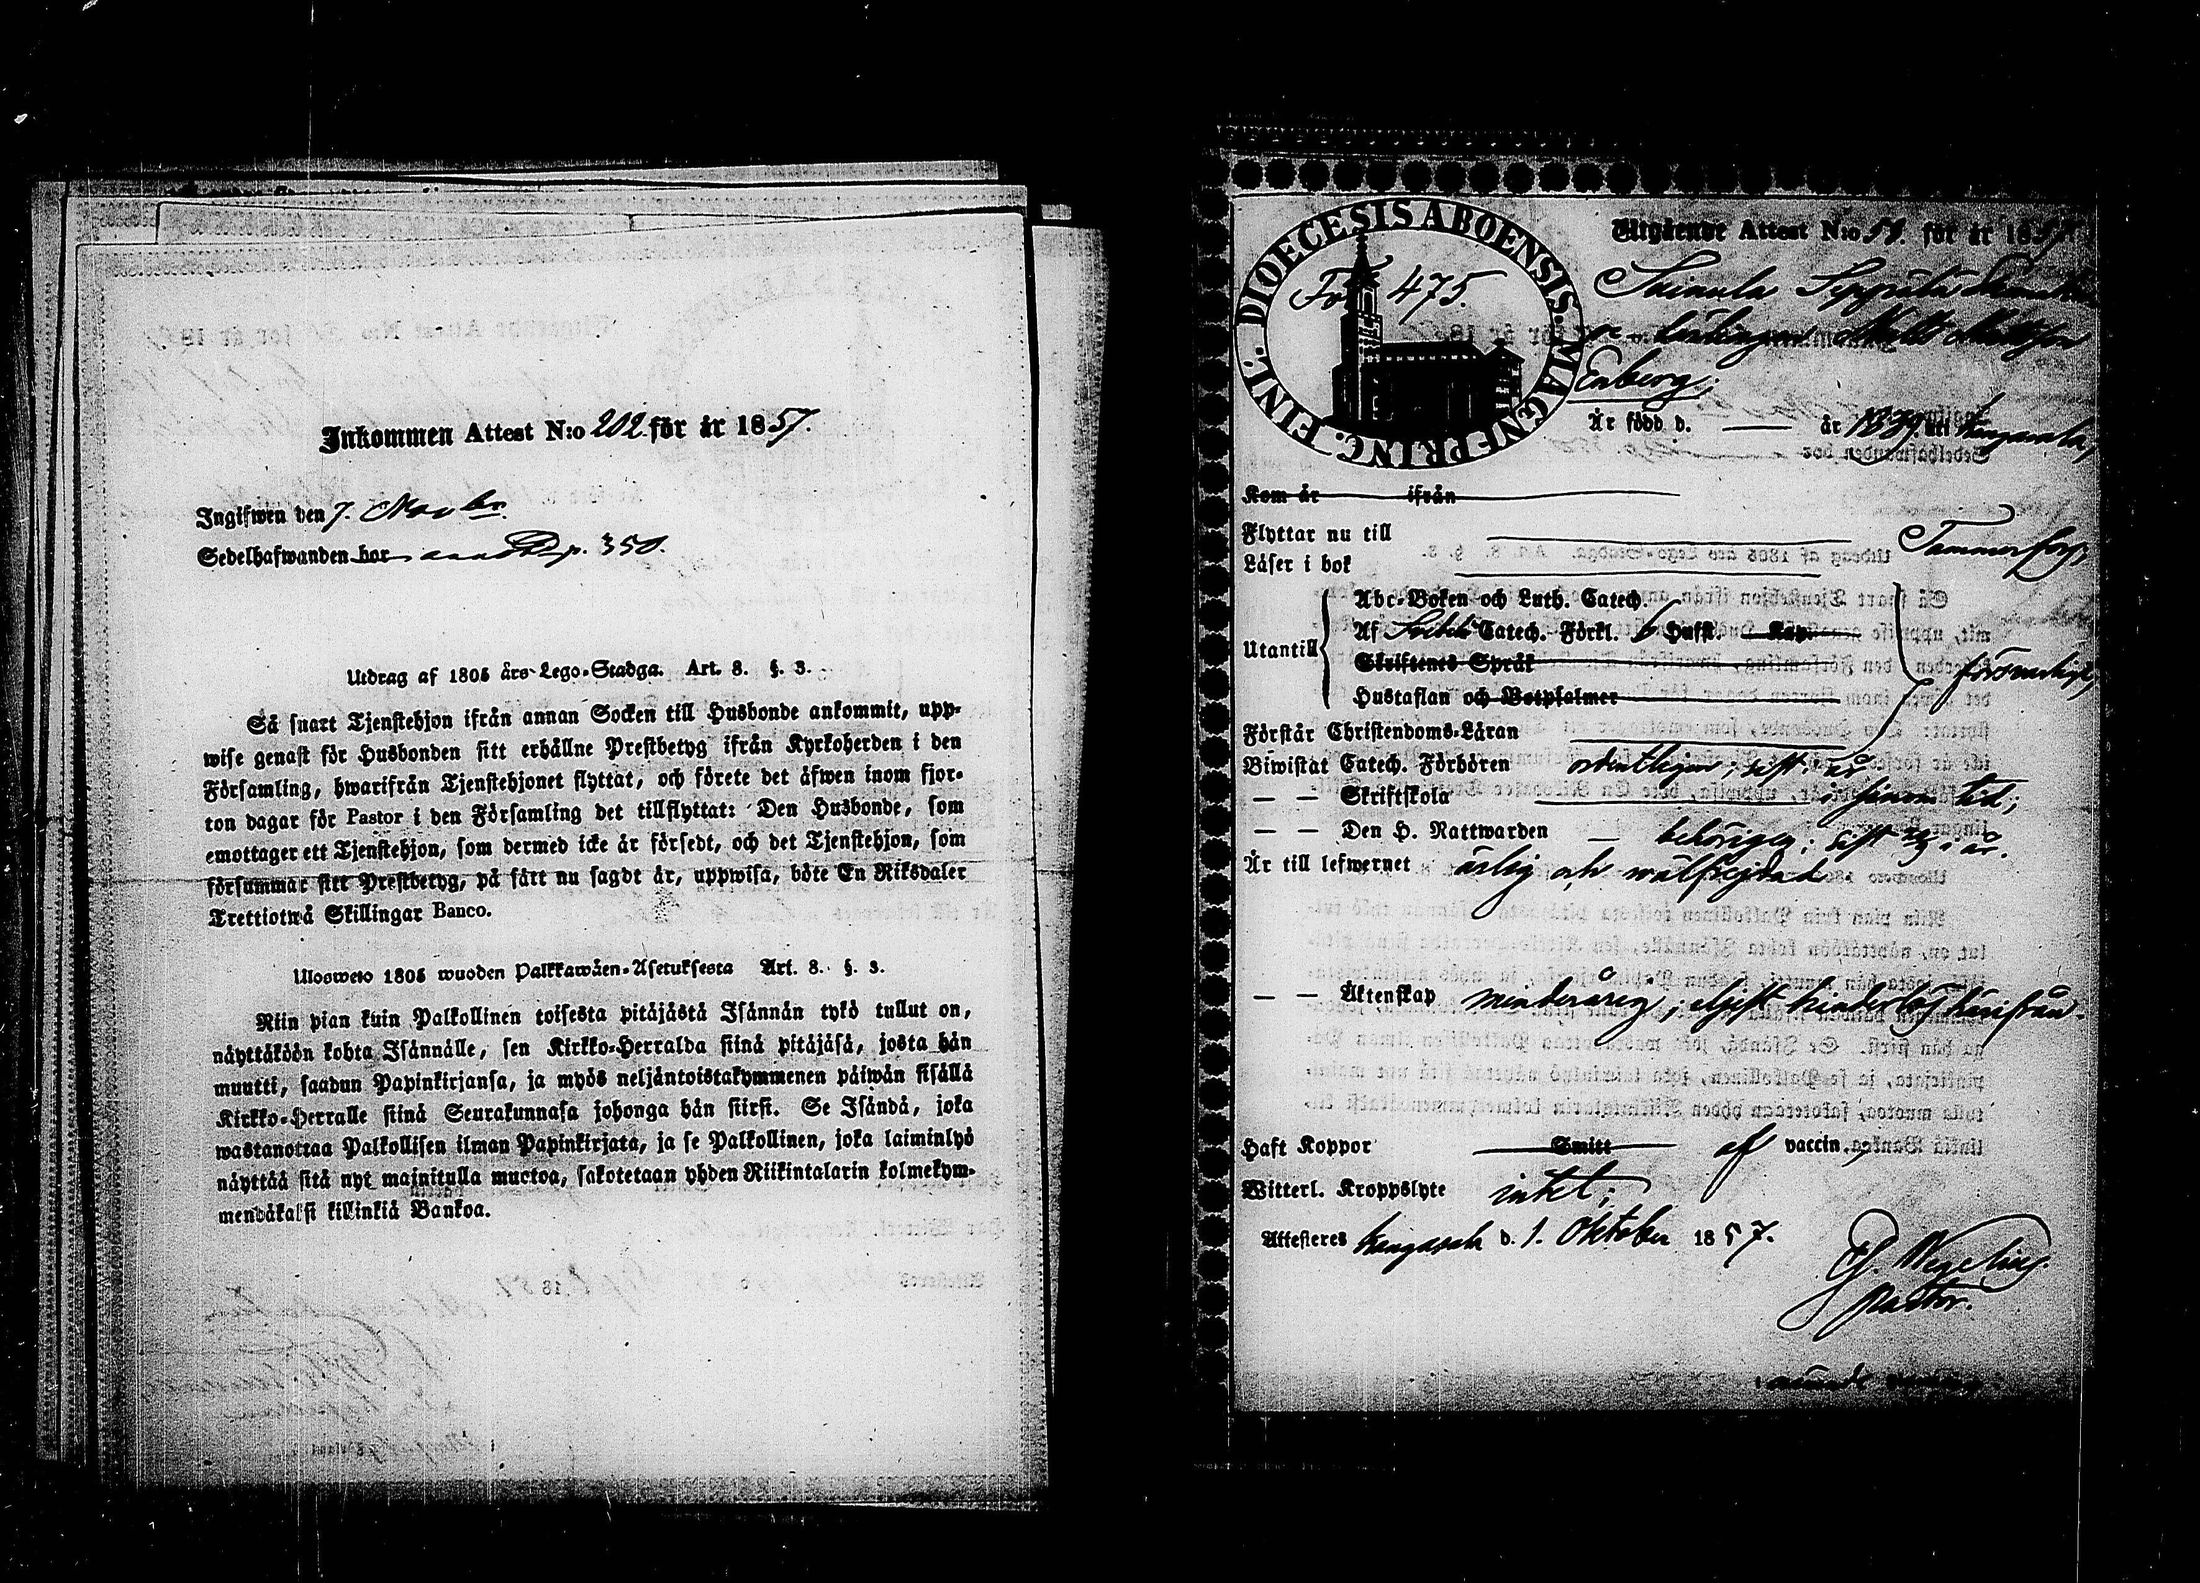 Inkommen Attest N:o 202 för år 1857.
Ingifwen den 7. Novbr.
Sedelhafwanden bor p. 350.
Utdrag af 1805 års Lego-Stadga. Art. 8. §. 3.
Så snart Tjenstehjon ifrån annan Socken till Husbonde ankommit, upp-
wise genast för Husbonden sitt erhållne Prestbetyg ifrån Kyrkoherden i den
Församling, hwarifrån Tjenstehjonet flyttat, och förete det äfwen inom fjor-
ton dagar för Pastor i den Församling det tillflyttat: Den Husbonde, som
emottager ett Tjenstehjon, som dermed icke är försedt, och det Tjenstehjon, som
försummar sitt Prestbetyg, på sätt nu sagdt är, uppwisa, böte En Riksdaler
Trettiotwå Skillingar Banco.
Ulosweto 1805 wuoden Palkkawäen-Asetuksesta Art. 8. §. 3.
Niin pian kuin Palkollinen toisesta pitäjästä Isännän tykö tullut on,
näyttäköön kohta Isännälle, sen Kirkko-Herralda siinä pitäjäsä, josta hän
muutti, saadun Papinkirjansa, ja myös neljäntoistakymmenen päiwän sisällä
Kirkko-Herralle siinä Seurakunnasa johonga hän siirsi. Se Isändä, joka
wastanottaa Palkollisen ilman Papinkirjata, ja se Palkollinen, joka laiminlyö
näyttää sitä nyt mainitulla muotoa, sakotetaan yhden Riikintalarin kolmekym-
mendäkaksi killinkiä Bankoa.
DIOECESIS ABOENSIS. MAGNI PRINC. FINL.
Fol 475.
Utgående Attest N:o 51. för år 1857
Enberg;
Är född d. — år 1839 uti Kangasala,
Kom år ifrån
Flyttar nu till Tammerfors
Läser i bok
Utantill
Abc-Boken och Luth. Catech.
Af Catech. Förkl. 6 Hufst. Kap.
Skriftenes Språk
Hustaflan och Botpsalmer
försvarligt,
Förstår Christendoms-Läran
Biwistat Catech. Förhören ordentligen; sist i år
— — Skriftskola i sinom tid;
— — Den H. Nattwarden behörigen; sist i år.
Är till lefwernet ärlig och wälfrejdad
— — Äktenskap minderårig; eljest hinderlös härifrån.
Haft Koppor Smitt af vaccin,
Witterl. Kroppslyte intet;
Attesteres Kangasala d. 1. Oktober 1857.
Wegelius
Pastor.